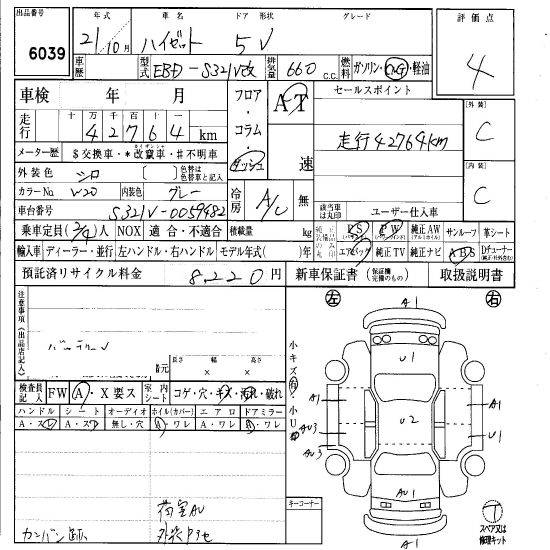 出品番号 年式 車名 ドア 形状 グレード 評価点
6039 21/10月 ハイゼット 5V 4
車歴 型式 EBD-S321V改 排気量 660 c.c. 燃料 ガソリン・CNG・軽油
車検 年 月 フロア・コラム・ダッシュ AT 速 セールスポイント
走行 十万千百十 42764 km 走行42764km
メーター歴 $交換車・*改竄車・#不明車
外装 C
内装 C
外装色 シロ [ ] 色替は色替車と記入
カラーNo. W20 内装色 グレー 冷房 A/C 無 該当車は丸印 ユーザー仕入車
車台番号 S321V-0059482
乗車定員 (2/4)人 NOX 適合・不適合 積載量 kg 純正装備品のみ丸印 PS PW 純正AW サンルーフ 革シート
輸入車 ディーラー・並行 左ハンドル・右ハンドル モデル年式( )年 エアバッグ 純正TV 純正ナビ ABS Dチューナー
預託済リサイクル料金 8220円 新車保証書 取扱説明書
注意事項(出品店記入)
諸元 長さ 幅 高さ
× ×
検査員記入 FW A・X要ス 室内シート コゲ・穴・キズ・汚れ・破れ
ハンドル シート オーディオ ホイル(カバー) エアロ ドアミラー
A・スレ A・スレ 無し・穴 A・ワレ A・ワレ A・ワレ
荷室AU
カンバン跡
キーコーナー
小キズ有・小U
左 右
A1
U1
A1
U2
AU3 U1
AU3
AU1
A1
T
スペア又は修理キット